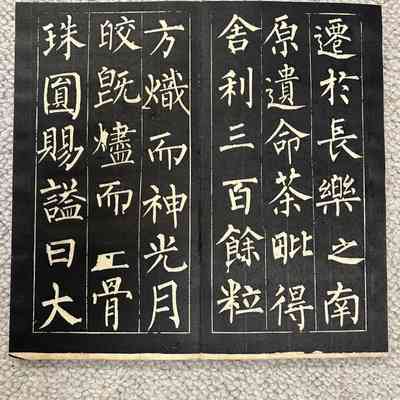 遷於長樂之南
原遺命茶毗得
舍利三百餘粒
方熾而神光月
皎既燼而骨
珠圓賜謚曰大